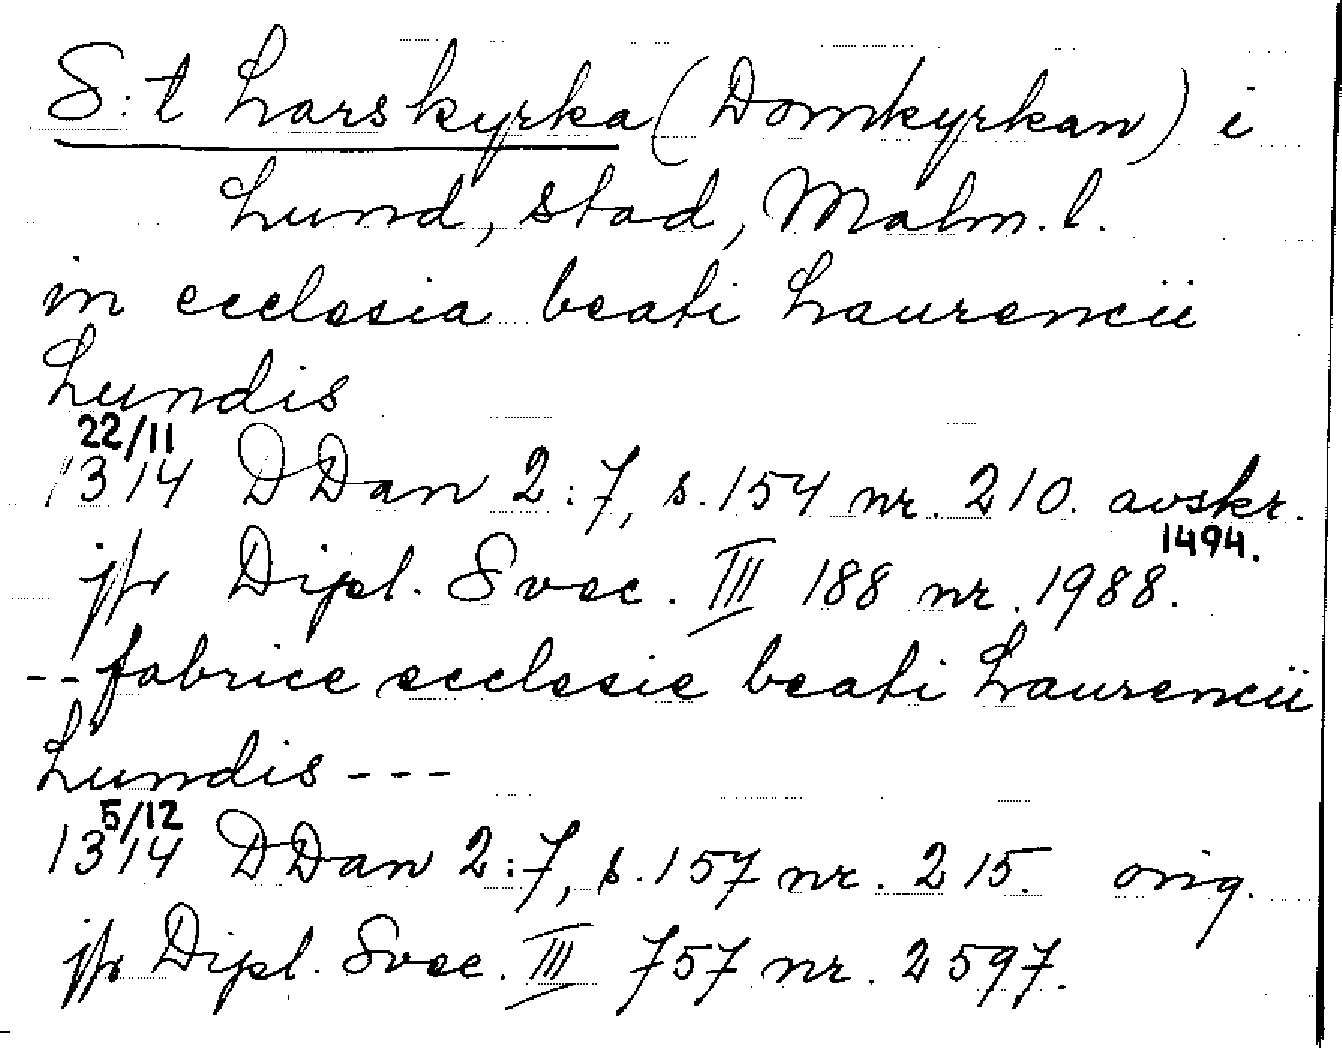 S:t Lars kyrka (Domkyrkan) i
Lund, stad, Malm. l.
in ecclesia beati Laurencii
Lundis
22/11
1314 DDan 2:7, s. 154 nr. 210. avskr.
1494.
jfr Dipl. Svec. III 188 nr. 1988.
-- fabrice ecclesie beati Laurencii
Lundis ---
5/12
1314 DDan 2:7, s. 157 nr. 215. orig.
jfr Dipl. Svec. III 757 nr. 2597.